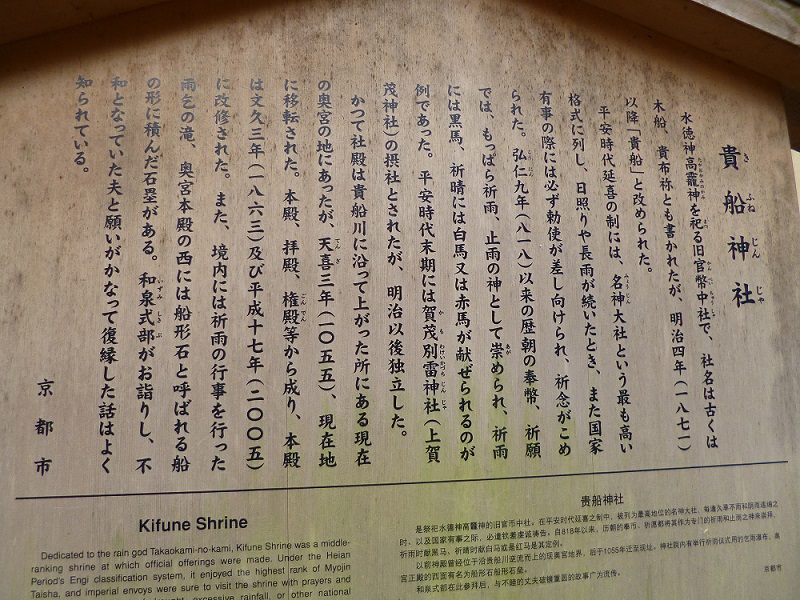 貴船神社
きふねじんじゃ
水徳神高龗神を祀る旧官幣中社で、社名は古くは
木船、貴布祢とも書かれたが、明治四年(一八七一)
以降「貴船」と改められた。
平安時代延喜の制には、名神大社という最も高い
格式に列し、日照りや長雨が続いたとき、また国家
有事の際には必ず勅使が差し向けられ、祈念がこめ
られた。弘仁九年(八一八)以来の歴朝の奉幣、祈願
では、もっぱら祈雨、止雨の神として崇められ、祈雨
には黒馬、祈晴には白馬又は赤馬が献ぜられるのが
例であった。平安時代末期には賀茂別雷神社(上賀
茂神社)の摂社とされたが、明治以後独立した。
かつて社殿は貴船川に沿って上がった所にある現在
の奥宮の地にあったが、天喜三年(一〇五五)、現在地
に移転された。本殿、拝殿、権殿等から成り、本殿
は文久三年(一八六三)及び平成十七年(二〇〇五)
に改修された。また、境内には祈雨の行事を行った
雨乞の滝、奥宮本殿の西には船形石と呼ばれる船
の形に積んだ石塁がある。和泉式部がお詣りし、不
和となっていた夫と願いがかなって復縁した話はよく
知られている。
京都市
Kifune Shrine
Dedicated to the rain god Takaokami-no-kami, Kifune Shrine was a middle-
ranking shrine at which official offerings were made. Under the Heian
Period's Engi classification system, it enjoyed the highest rank of Myojin
Taisha, and imperial envoys were sure to visit the shrine with prayers and
excessive rainfall, or other national
贵船神社
是祭祀水德神高龗神的旧官币中社。在平安时代延喜之制中，被列为最高地位的名神大社，每逢久旱不雨和阴雨连绵之
时，以及国家有事之际，必遣钦差虔诚祷告。自818年以来，历朝的奉币、祈愿都将其作为专门的祈雨和止雨之神来崇拜，
祈雨时献黑马、祈晴时献白马或是红马是其定例。
以前神殿曾经位于沿贵船川逆流而上的现奥宫地界，后于1055年迁至现址。
宫正殿的西面有名为船形石船形石垒。
和泉式部在此参拜后，与不睦的丈夫破镜重圆的故事广为流传。
京都市